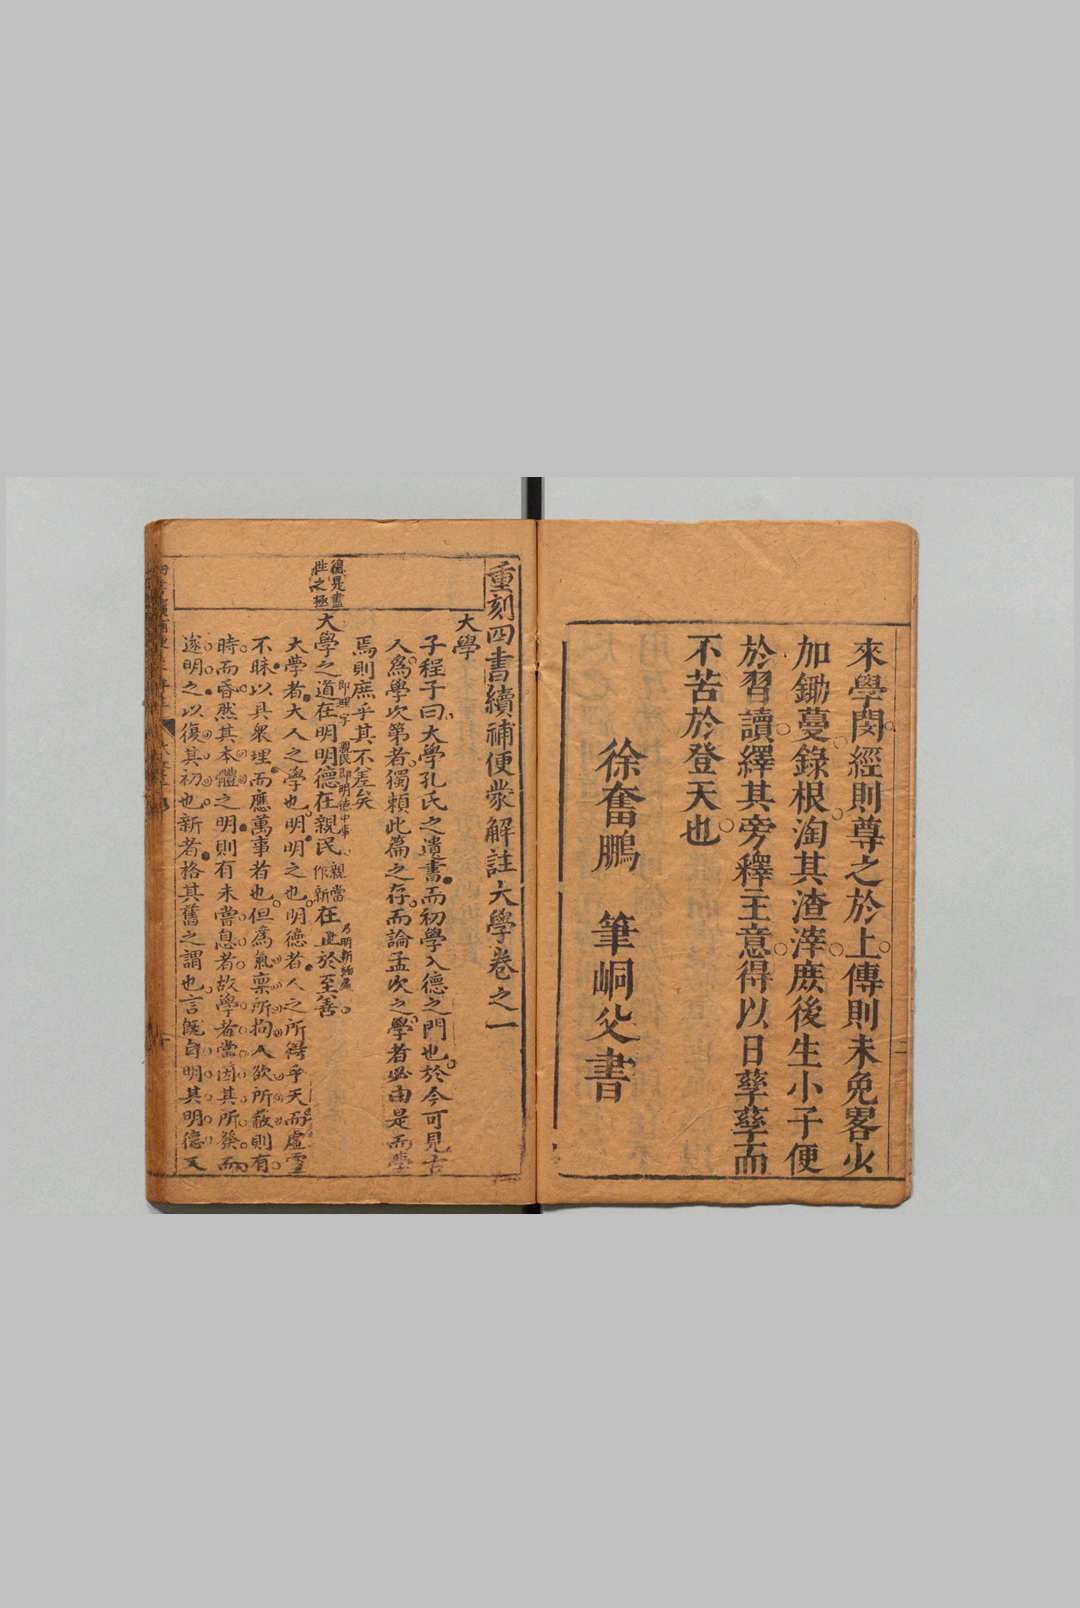 來學閔經則尊之於上傳則未免畧少
加鋤蔓錄根淘其渣滓庻後生小子便
於習讀繹其旁釋主意得以日孳孳而
不苦於登天也
徐奮鵬 筆峒父書
重刻四書續補便蒙解註大學卷之一
大學
子程子曰大學孔氏之遺書而初學入德之門也於今可見古
人爲學次第者獨賴此篇之存而論孟次之學者必由是而學
焉則庶乎其不差矣
大學之道在明明德在親民在止於至善
即理字
親民即明德中事
親當
作新
復是盡
性之極
大學者大人之學也明明之也明德者人之所得乎天而虛靈
不昧以具衆理而應萬事者也但爲氣稟所拘人欲所蔽則有
時而昏然其本體之明則有未嘗息者故學者當因其所發而
遂明之以復其初也新者革其舊之謂也言旣自明其明德又